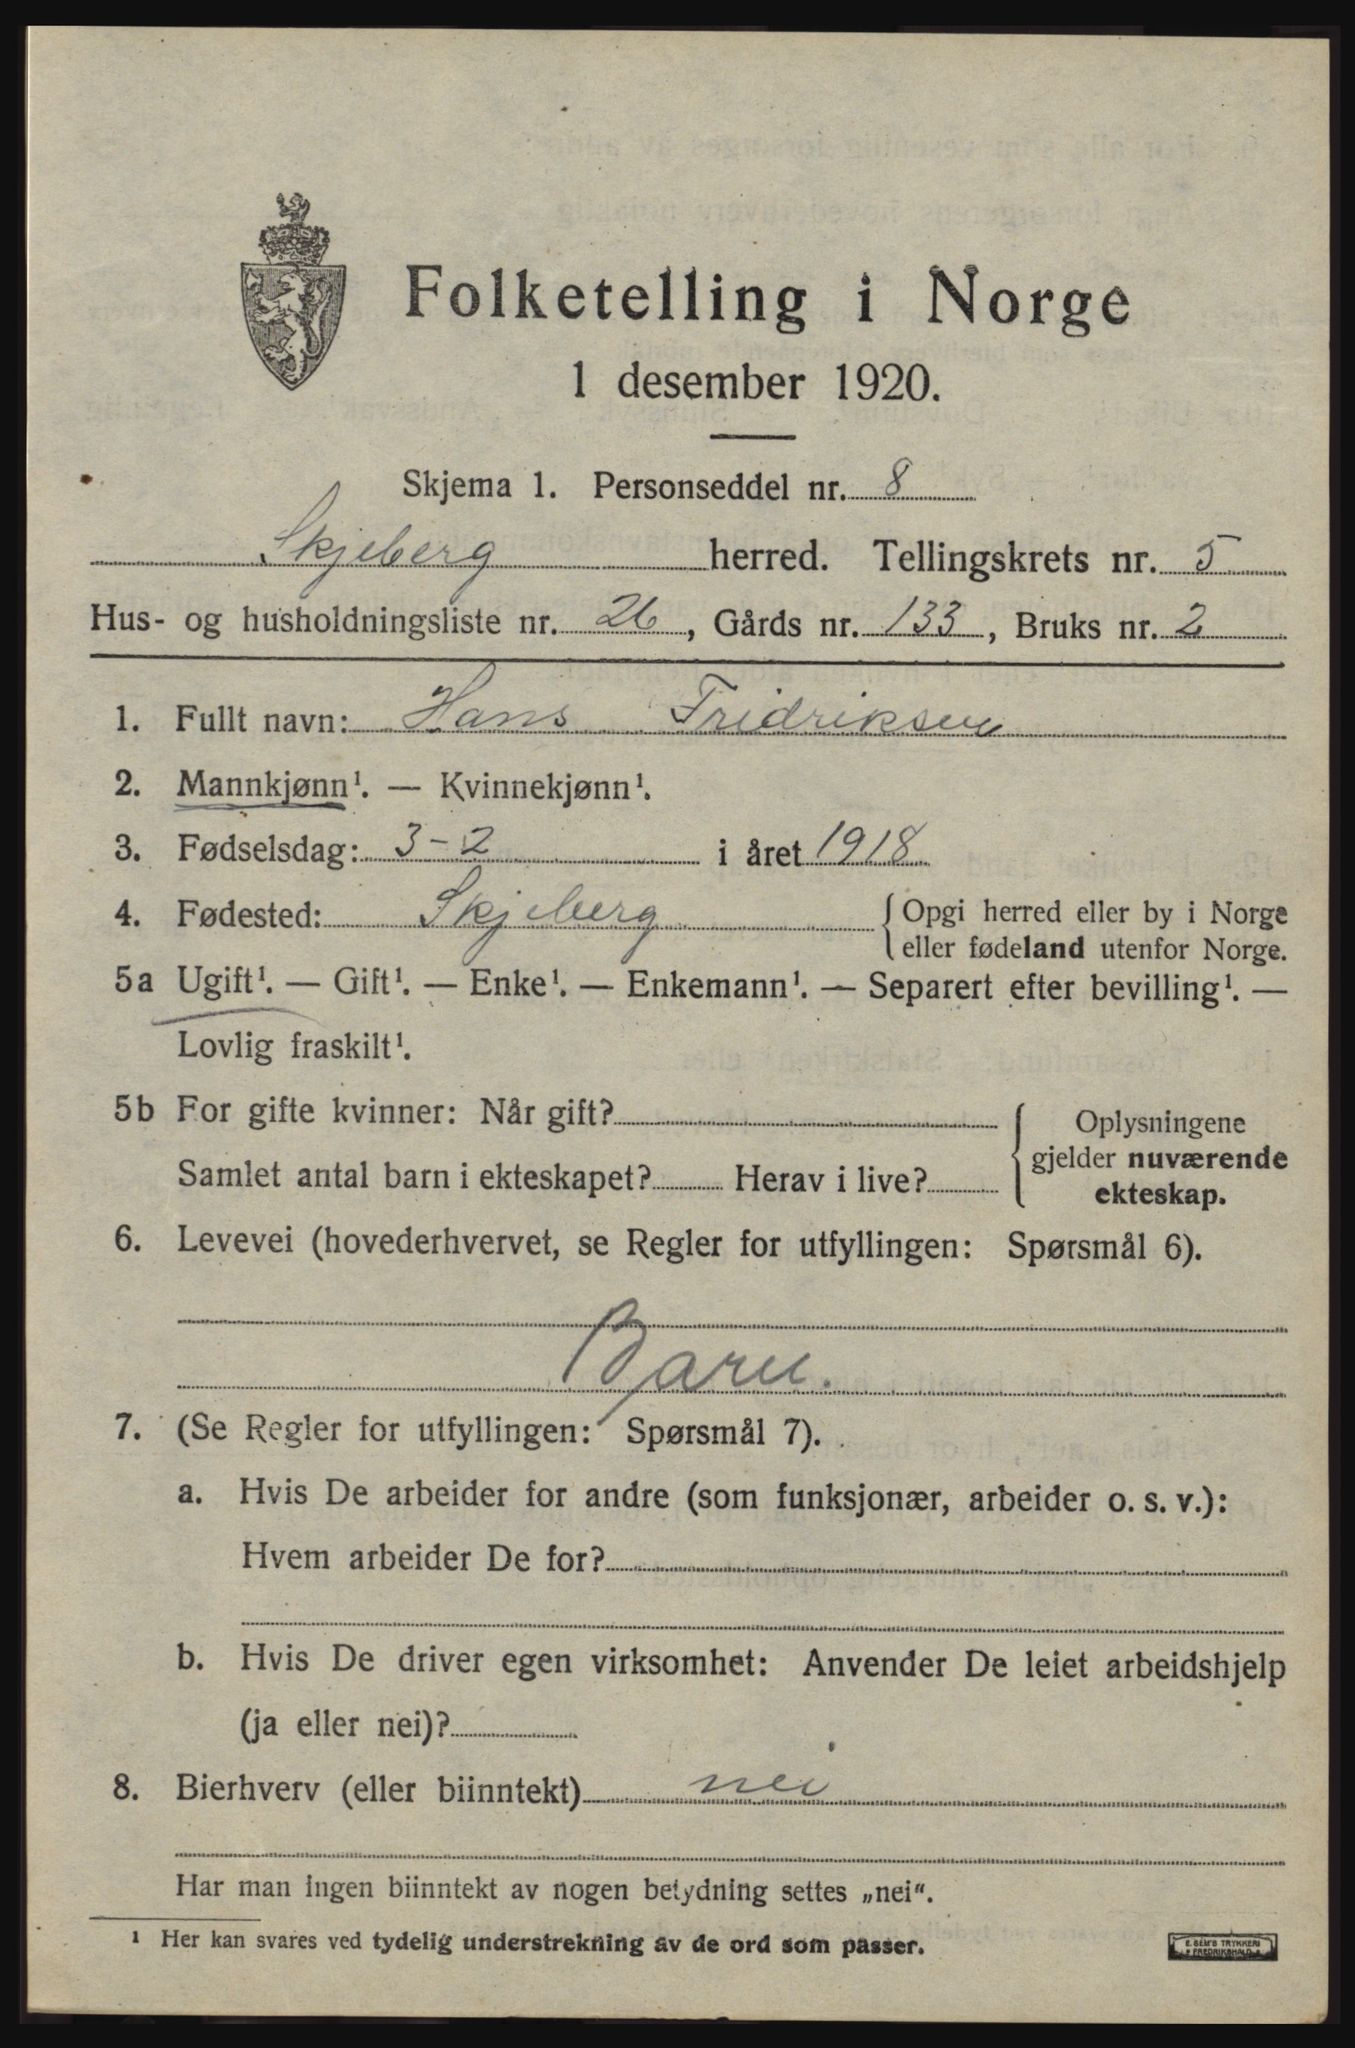 Folketelling i Norge
1 desember 1920.
Skjema 1. Personseddel nr. 8
Skjeberg herred. Tellingskrets nr. 5
Hus- og husholdningsliste nr. 26, Gårds nr. 133, Bruks nr. 2
1. Fullt navn: Hans Fridriksen
2. Mannkjønn¹. — Kvinnekjønn¹.
3. Fødselsdag: 3-2 i året 1918
4. Fødested: Skjeberg { Opgi herred eller by i Norge
eller fødeland utenfor Norge.
5a Ugift¹. — Gift¹. — Enke¹. — Enkemann¹. — Separert efter bevilling¹. —
Lovlig fraskilt¹.
5b For gifte kvinner: Når gift? { Oplysningene
gjelder nuværende
Samlet antal barn i ekteskapet? Herav i live? ekteskap.
6. Levevei (hovederhvervet, se Regler for utfyllingen: Spørsmål 6).
Barn.
7. (Se Regler for utfyllingen: Spørsmål 7).
a. Hvis De arbeider for andre (som funksjonær, arbeider o. s. v.):
Hvem arbeider De for?
b. Hvis De driver egen virksomhet: Anvender De leiet arbeidshjelp
(ja eller nei)?
8. Bierhverv (eller biinntekt) nei
Har man ingen biinntekt av nogen betydning settes „nei“.
¹ Her kan svares ved tydelig understrekning av de ord som passer.
E. SEM'S TRYKKERI
FREDRIKSHALD